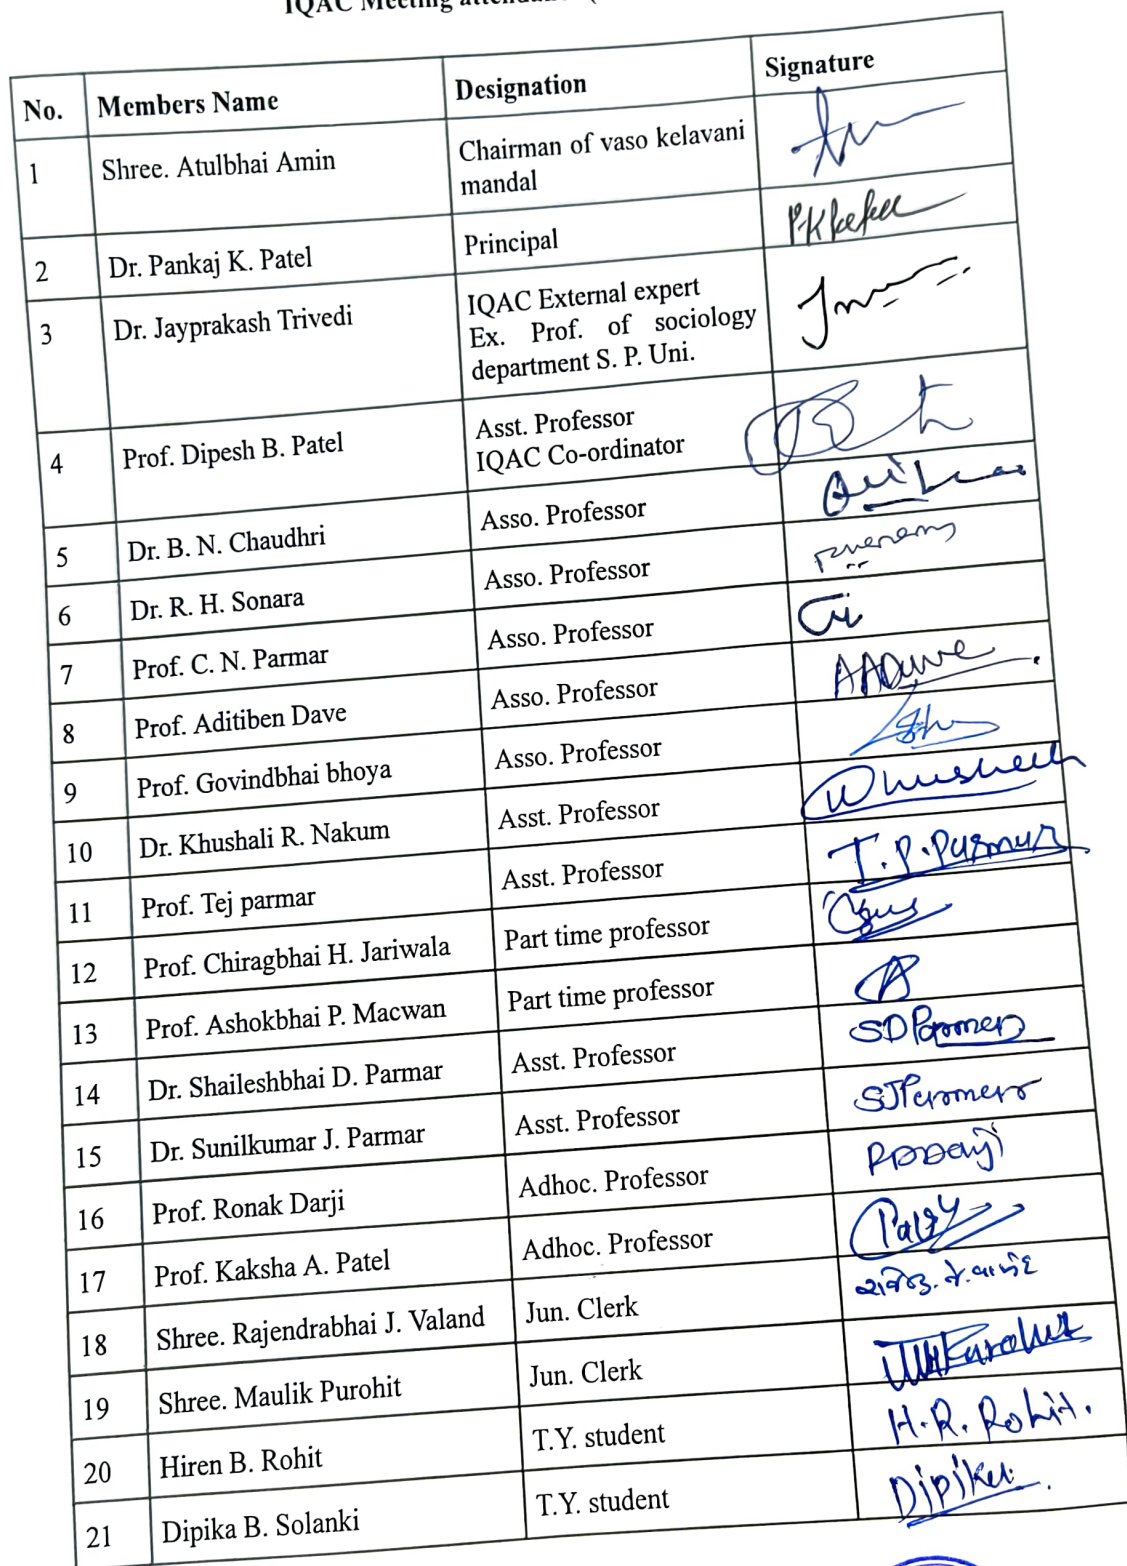 IQAC Meeting
No. Members Name Designation Signature
1 Shree. Atulbhai Amin Chairman of vaso kelavani
mandal
2 Dr. Pankaj K. Patel Principal
3 Dr. Jayprakash Trivedi IQAC External expert
Ex. Prof. of sociology
department S. P. Uni.
4 Prof. Dipesh B. Patel Asst. Professor
IQAC Co-ordinator
5 Dr. B. N. Chaudhri Asso. Professor
6 Dr. R. H. Sonara Asso. Professor
7 Prof. C. N. Parmar Asso. Professor
8 Prof. Aditiben Dave Asso. Professor AADave
9 Prof. Govindbhai bhoya Asso. Professor
10 Dr. Khushali R. Nakum Asst. Professor
11 Prof. Tej parmar Asst. Professor T. P. Parmar
12 Prof. Chiragbhai H. Jariwala Part time professor
13 Prof. Ashokbhai P. Macwan Part time professor
14 Dr. Shaileshbhai D. Parmar Asst. Professor SDParmar
15 Dr. Sunilkumar J. Parmar Asst. Professor SJParmar
16 Prof. Ronak Darji Adhoc. Professor
17 Prof. Kaksha A. Patel Adhoc. Professor
18 Shree. Rajendrabhai J. Valand Jun. Clerk
19 Shree. Maulik Purohit Jun. Clerk
20 Hiren B. Rohit T.Y. student H.R. Rohit.
21 Dipika B. Solanki T.Y. student Dipika